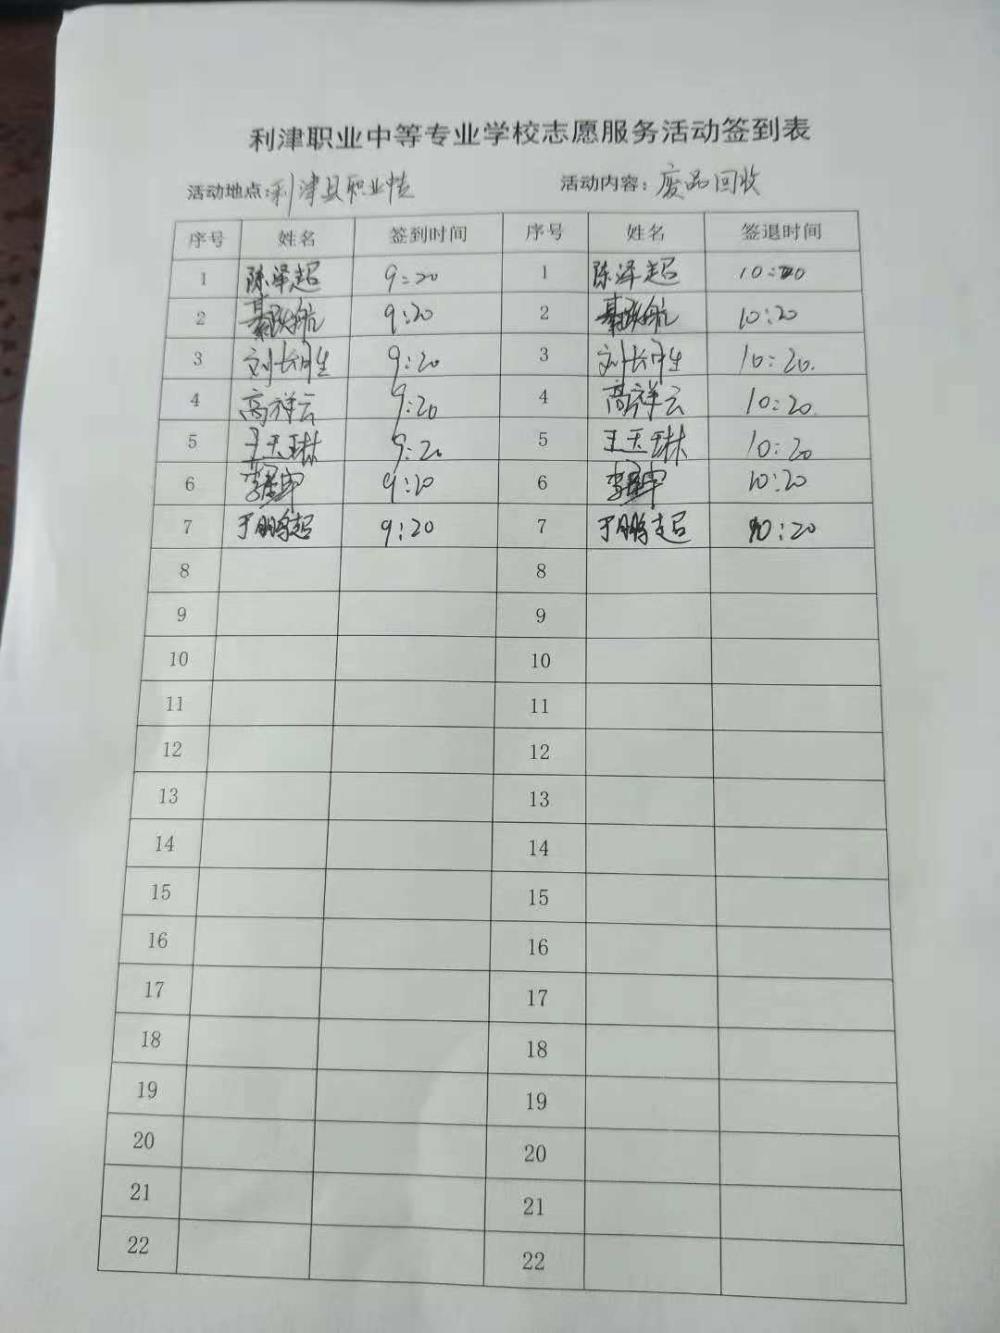 利津职业中等专业学校志愿服务活动签到表
活动地点:利津县职业 活动内容:废品回收
序号 姓名 签到时间 序号 姓名 签退时间
1 陈泽超 9:20 1 陈泽超 10:20
2 航 9:20 2 航 10:20
3 刘长生 9:20 3 刘长生 10:20.
4 高祥云 9:20 4 高祥云 10:20.
5 王玉琳 9:20 5 王玉琳 10:20
6 李 9:20 6 李 10:20
7 于鹏超 9:20 7 于鹏超 10:20
8 8
9 9
10 10
11 11
12 12
13 13
14 14
15 15
16 16
17 17
18 18
19 19
20 20
21 21
22 22